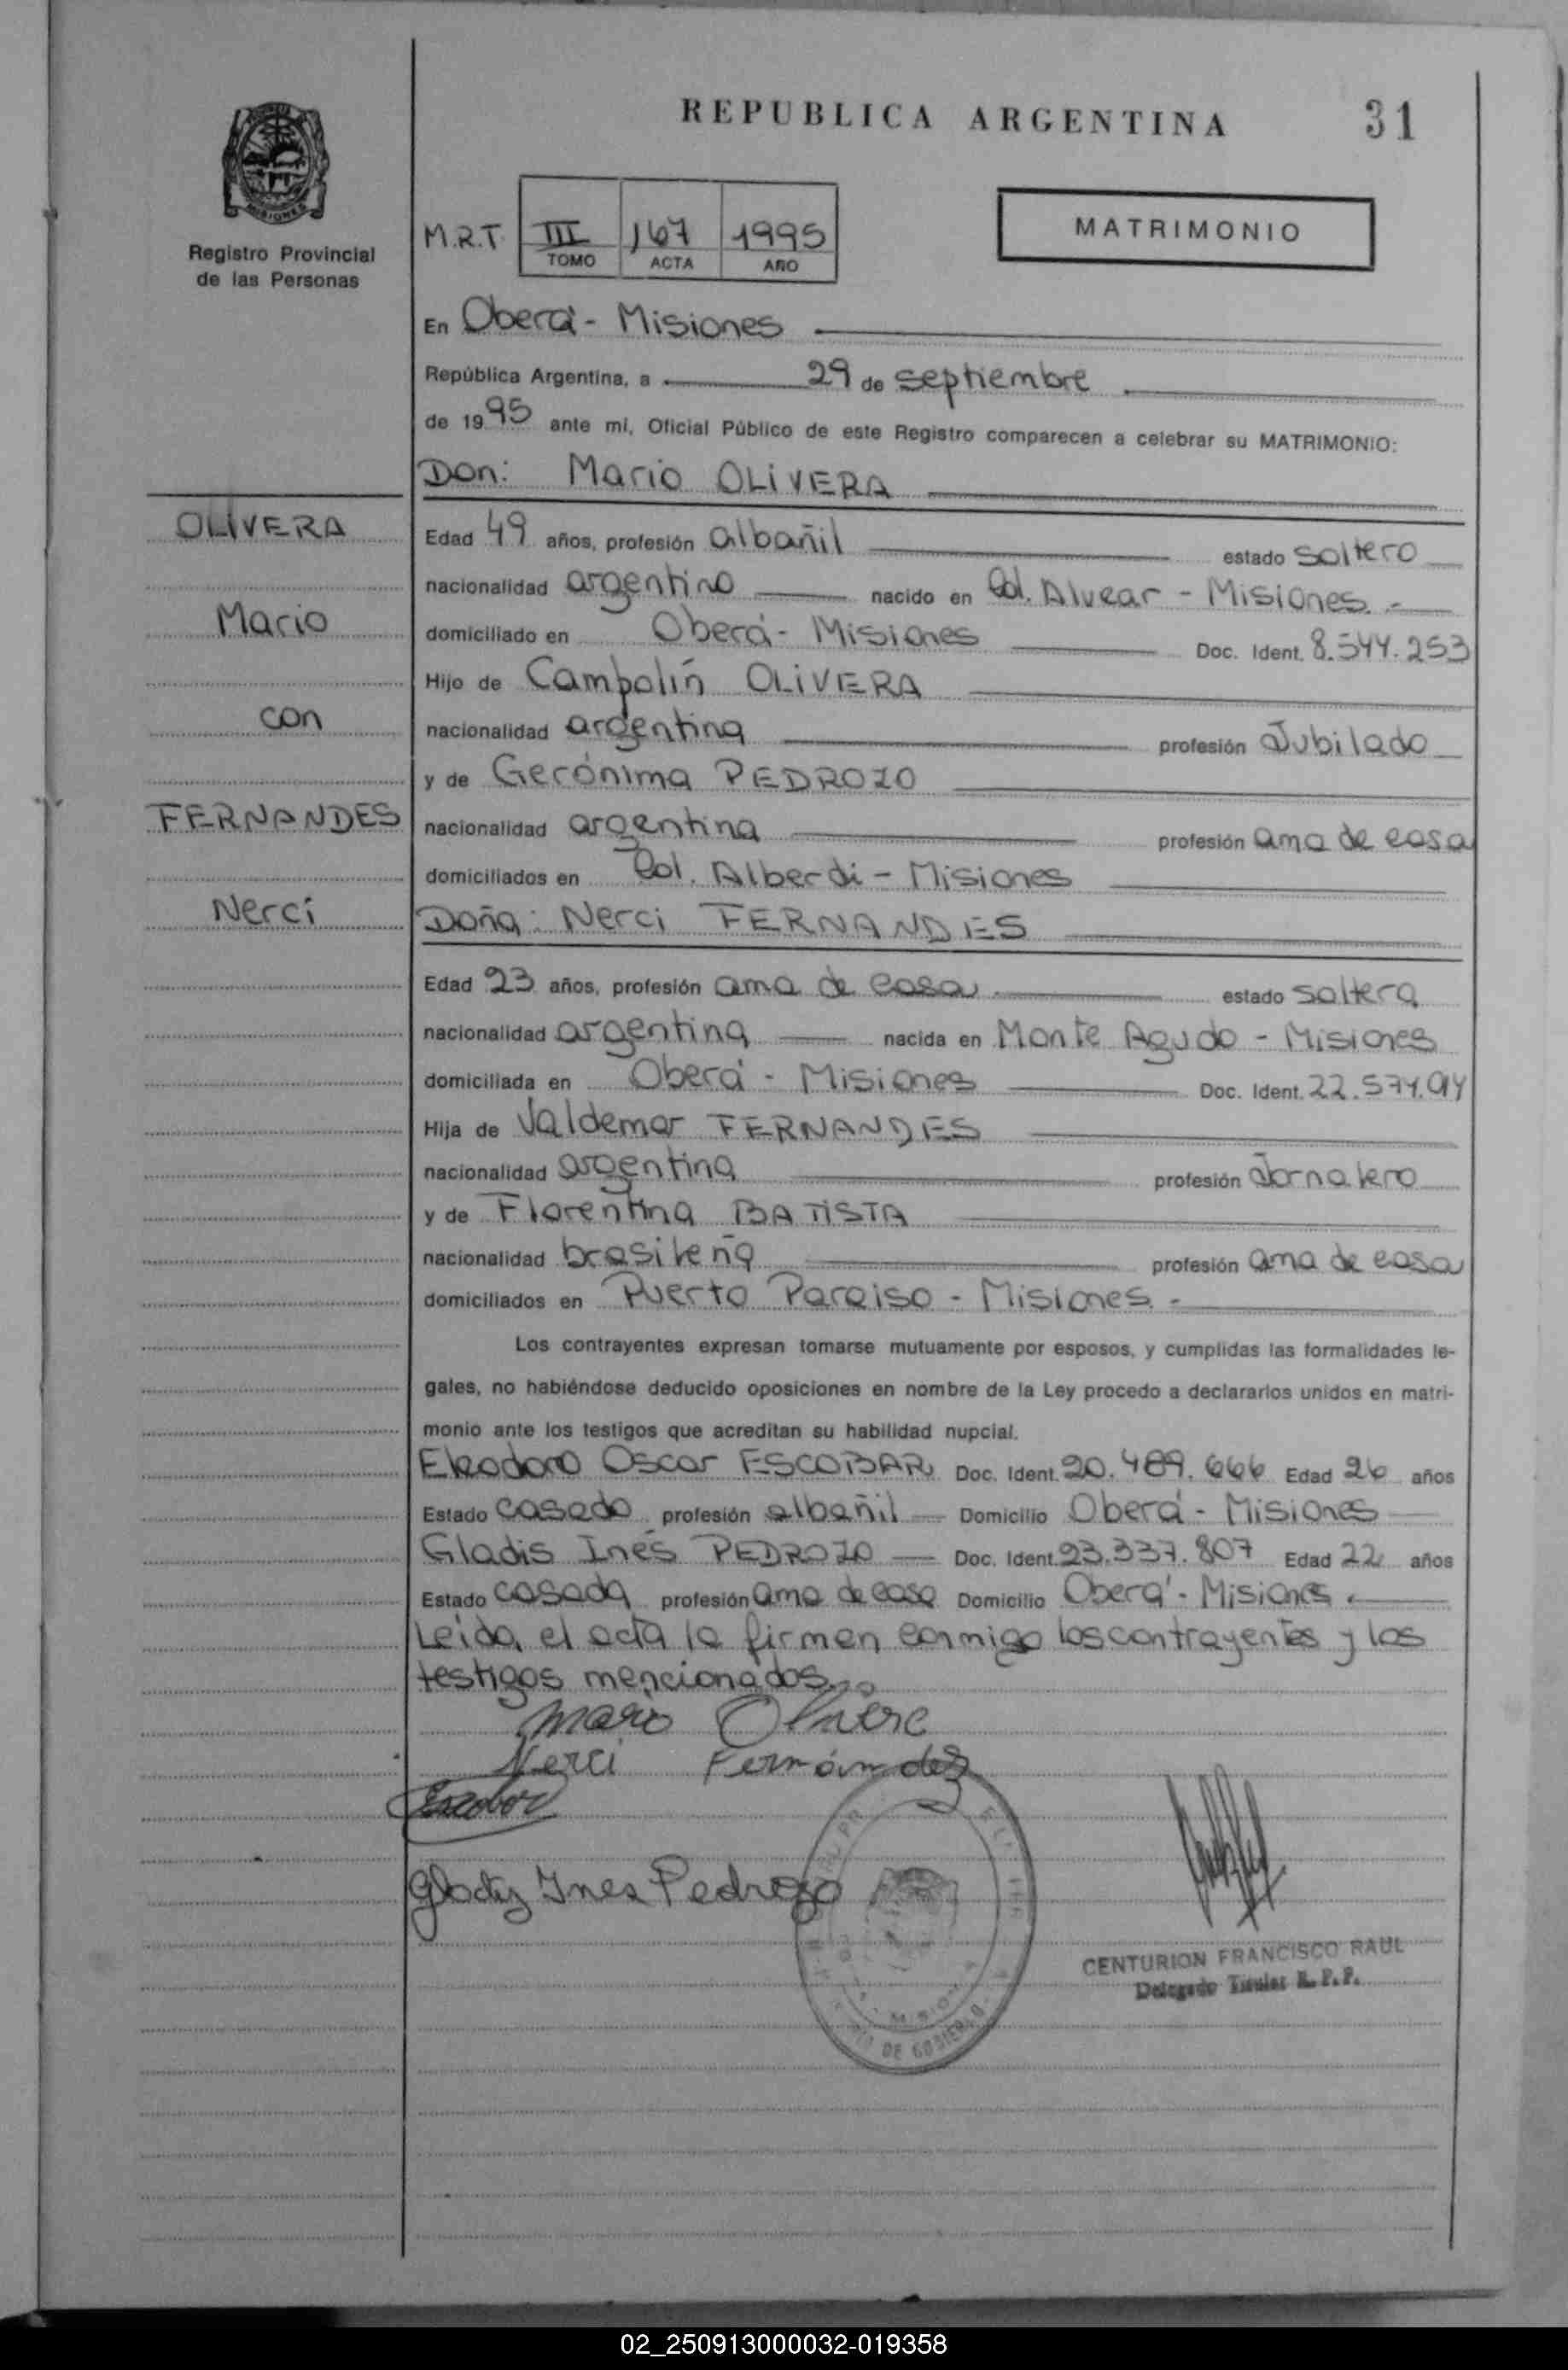 REPUBLICA ARGENTINA 31
MISIONES
Registro Provincial
de las Personas
M.R.T. III 167 1995
TOMO ACTA AÑO
MATRIMONIO
En Oberá - Misiones
República Argentina, a 29 de septiembre
de 1995 ante mi, Oficial Público de este Registro comparecen a celebrar su MATRIMONIO:
Don: Mario OLIVERA
OLIVERA
Mario
con
FERNANDES
Nerci
Edad 49 años, profesión albañil estado soltero
nacionalidad argentino nacido en Col. Alvear - Misiones.-
domiciliado en Oberá - Misiones Doc. Ident. 8.544.253
Hijo de Campolín OLIVERA
nacionalidad argentina profesión Jubilado
y de Gerónima PEDROZO
nacionalidad argentina profesión ama de casa
domiciliados en Col. Alberdi - Misiones
Doña: Nerci FERNANDES
Edad 23 años, profesión ama de casa estado soltera
nacionalidad argentina nacida en Monte Agudo - Misiones
domiciliada en Oberá - Misiones Doc. Ident.
Hija de Valdemar FERNANDES
nacionalidad argentina profesión Jornalero
y de Florentina BATISTA
nacionalidad brasileña profesión ama de casa
domiciliados en Puerto Paraiso - Misiones.-
Los contrayentes expresan tomarse mutuamente por esposos, y cumplidas las formalidades le-
gales, no habiéndose deducido oposiciones en nombre de la Ley procedo a declararlos unidos en matri-
monio ante los testigos que acreditan su habilidad nupcial.
Eleodoro Oscar ESCOBAR Doc. Ident. 20.489.666 Edad 26 años
Estado casado profesión albañil Domicilio Oberá - Misiones
Gladis Inés PEDROZO Doc. Ident. 23.337.807 Edad 22 años
Estado casada profesión ama de casa Domicilio Oberá - Misiones.
Leida el acta la firman conmigo los contrayentes y los
testigos mencionados.
Mario Olivera
Nerci Fernández
Escobar
Gladys Ines Pedrozo
DE GOBIERNO
CENTURION FRANCISCO RAUL
Delegado Titular R.P.P.
02_250913000032-019358